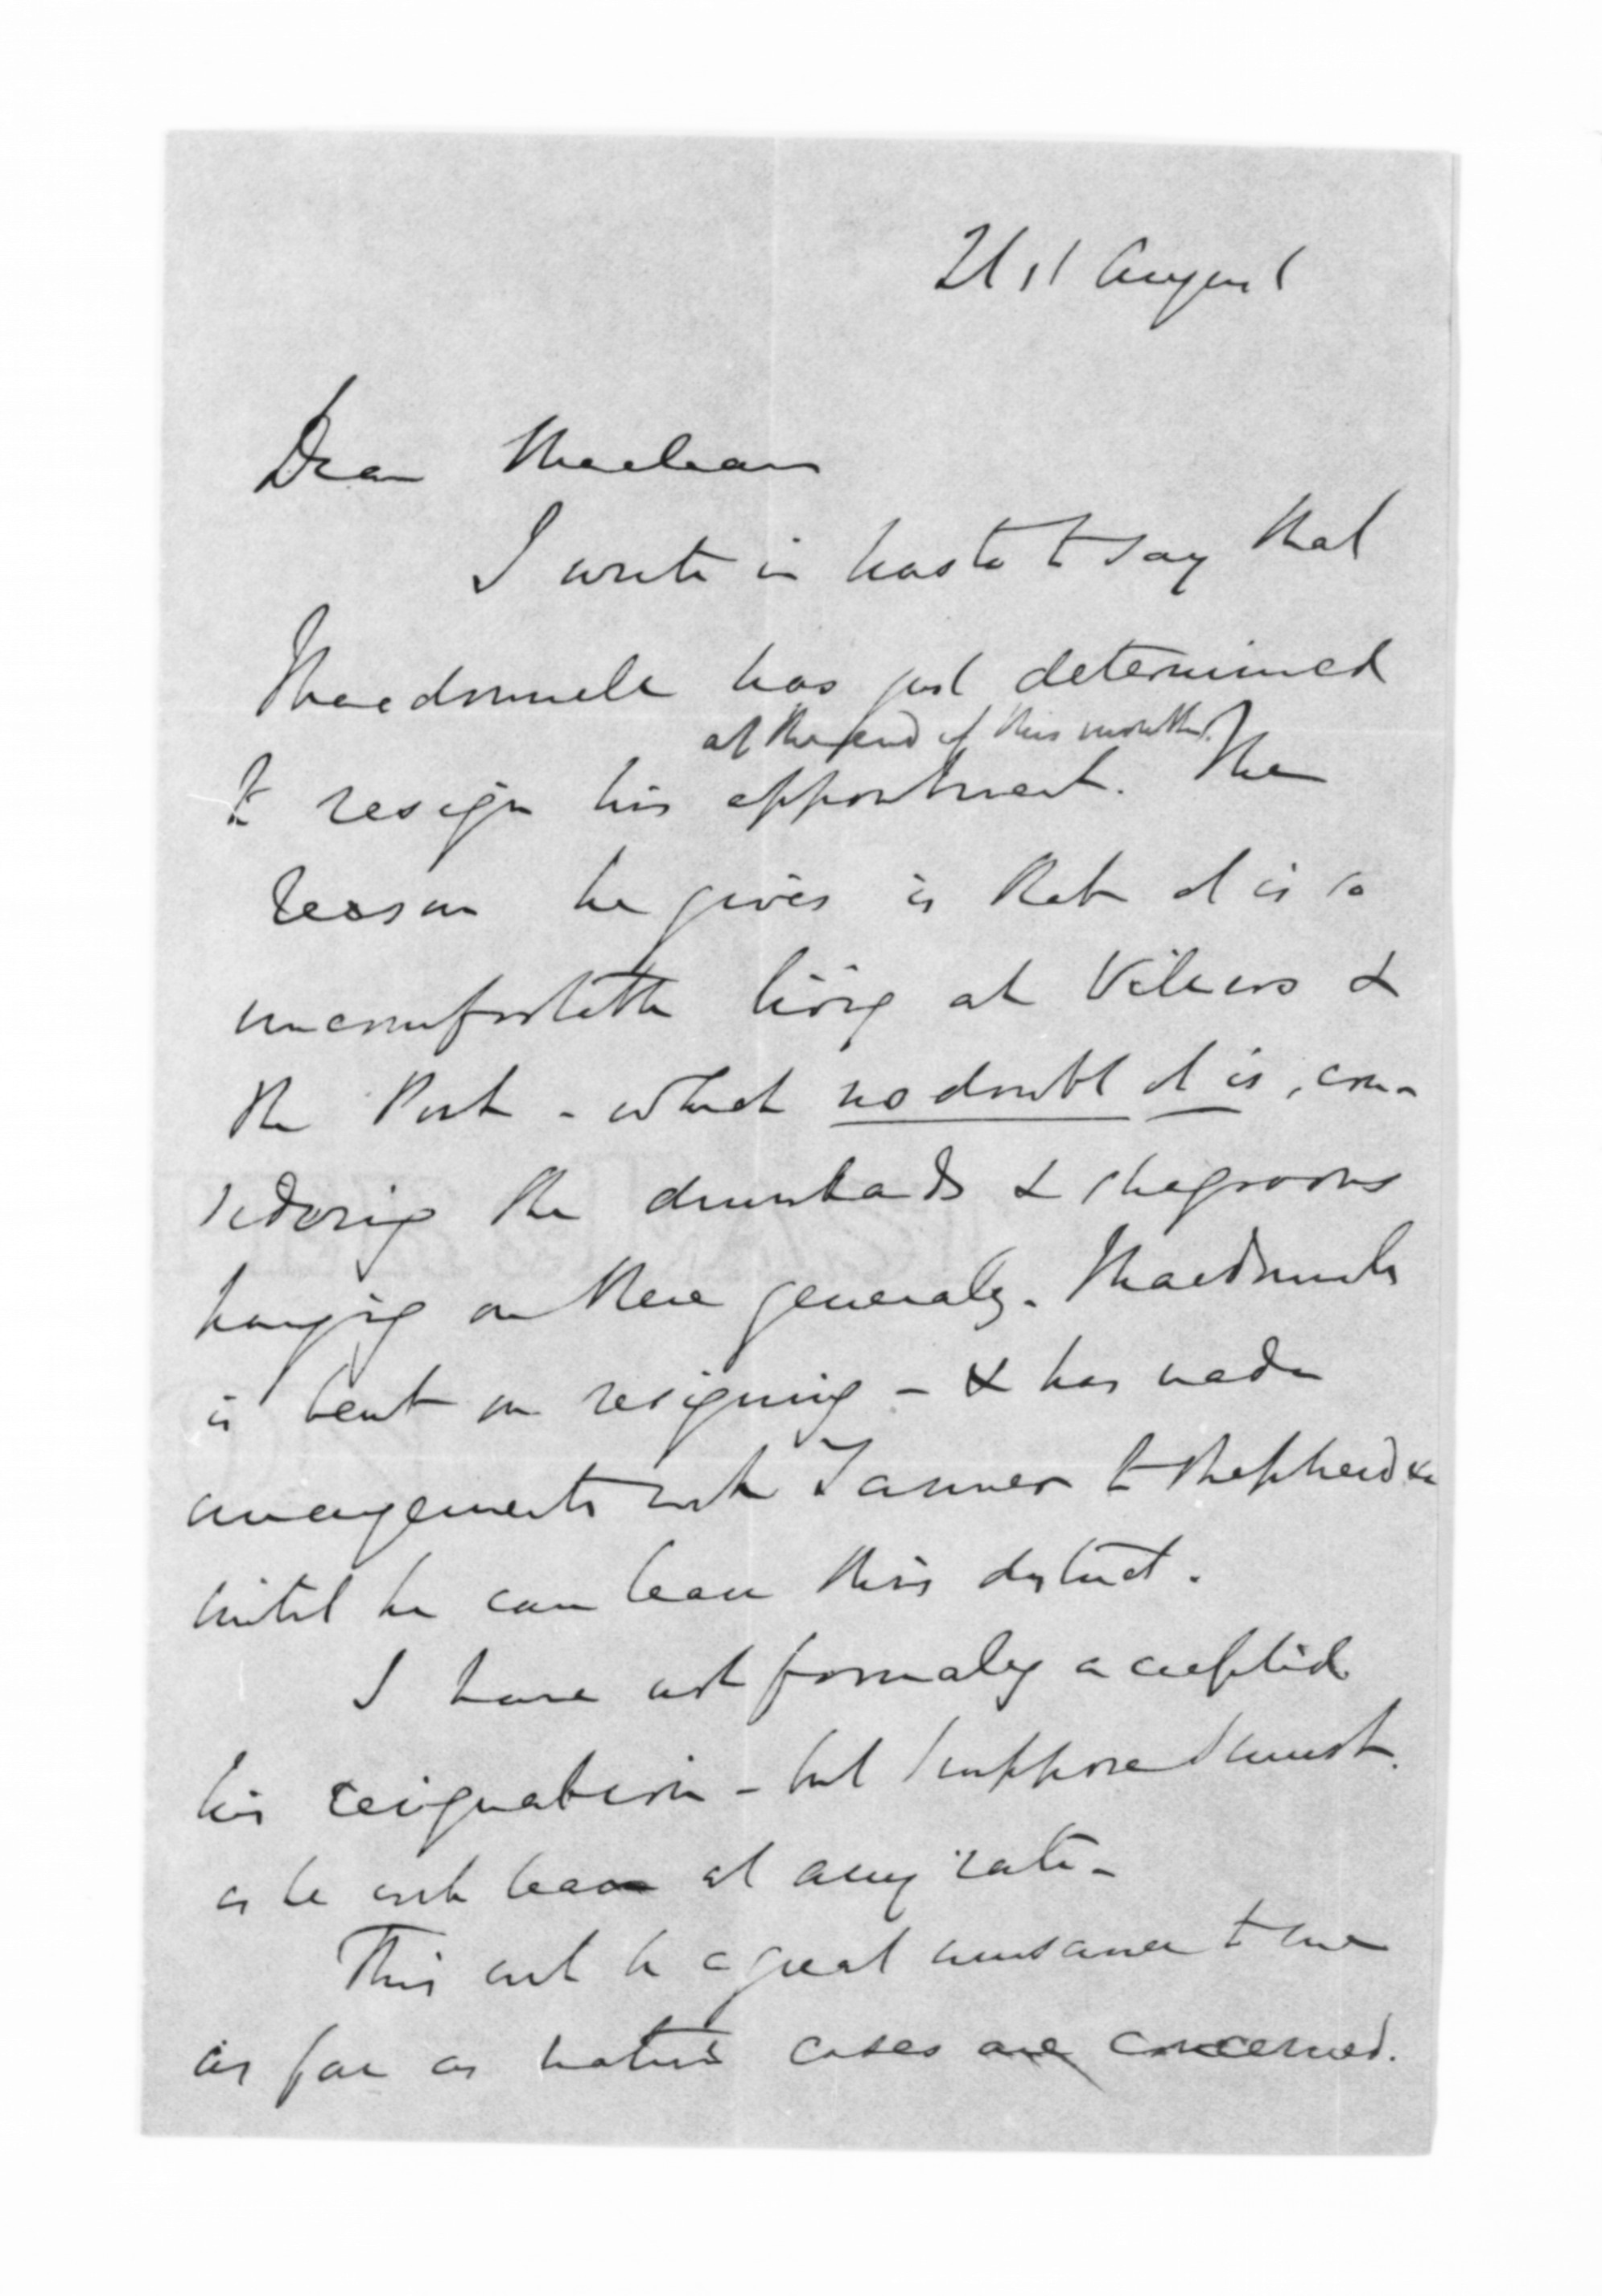 21st August
Dear Maclean
I write in haste to say that
Macdonnell has just determined
at the end of this month.
to resign his appointment. The
reason he gives is that it is so
uncomfortable living at Villers &
the Port - which no doubt it is, con-
sidering the drunkards & shagroons
hanging on there generally. Macdonnell
is bent on resigning - & has made
arrangements with Tanner to shepherd &c
until he can leave this district.
I have not formally accepted
his resignation - but I suppose I must.
as he will leave at any rate -
This will be a great nuisance to me
as far as native cases are concerned.